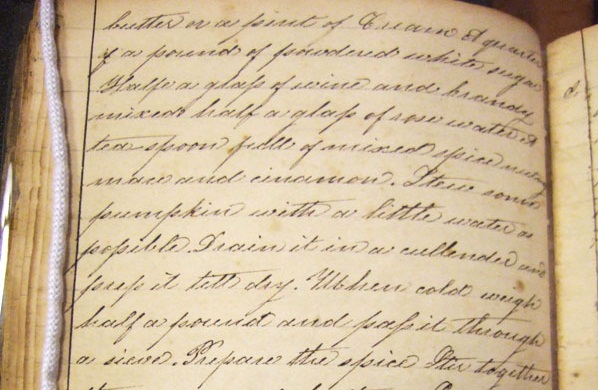 butter or a pint of Cream & quarter
of a pound of powdered white sugar
Halfe a glass of wine and brandy
mixed half a glass of rose water A
tea spoon full of mixed spice nutmeg
mace and cinamon. Stew some
pumpkin with a little water as
possible. Drain it in a cullender and
press it till dry. When cold weigh
half a pound and pass it through
a sieve. Prepare the spice Stir together